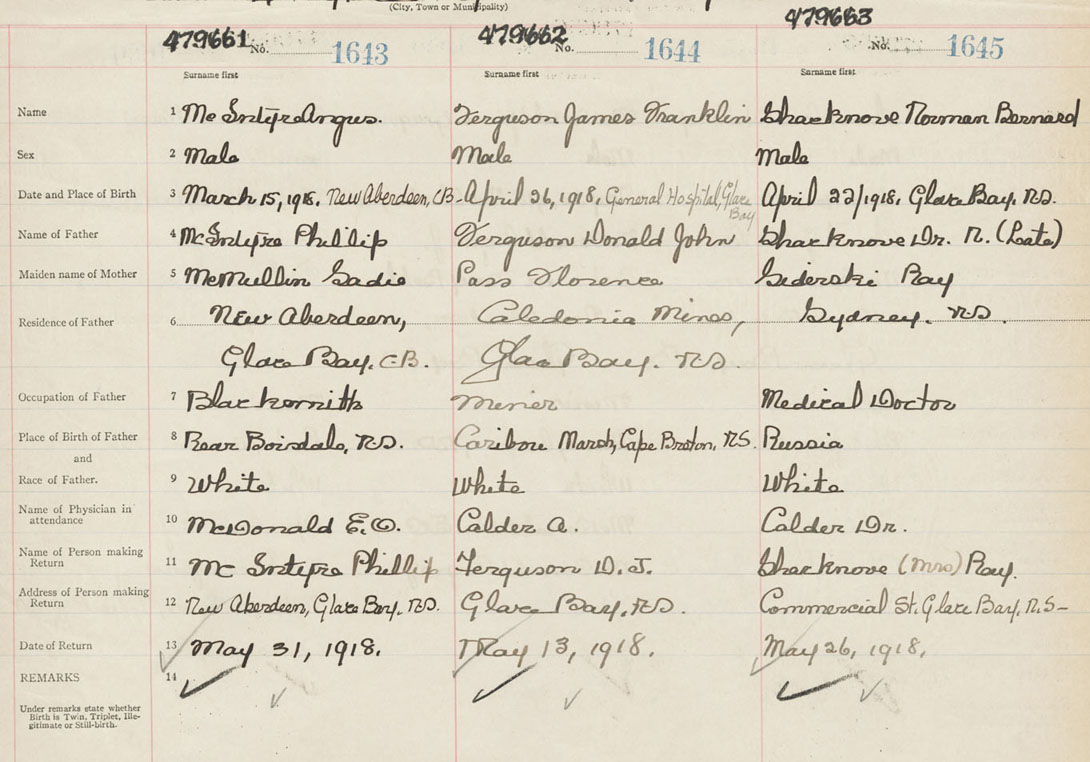 (City, Town or Municipality)
479661 No. 1643 479662 No. 1644 479663 No. 1645
Surname first Surname first Surname first
Name 1 McIntyre Angus. Ferguson James Franklin Shacknove Norman Bernard
Sex 2 Male Male Male
Date and Place of Birth 3 March 15, 1918. New Aberdeen, CB. April 26, 1918, General Hospital, Glace Bay April 22/1918, Glace Bay, N.S.
Name of Father 4 McIntyre Phillip Ferguson Donald John Shacknove Dr. N. (Late)
Maiden name of Mother 5 McMullin Sadie Pass Florence Siderski Ray
Residence of Father 6 New Aberdeen, Caledonia Mines, Sydney. N.S.
Glace Bay. C.B. Glace Bay. N.S.
Occupation of Father 7 Blacksmith Miner Medical Doctor
Place of Birth of Father 8 Rear Boisdale, N.S. Caribou Marsh, Cape Breton, N.S. Russia
and
Race of Father. 9 White White White
Name of Physician in attendance 10 McDonald E.O. Calder A. Calder Dr.
Name of Person making Return 11 McIntyre Phillip Ferguson D. J. Shacknove (Mrs) Ray.
Address of Person making Return 12 New Aberdeen, Glace Bay, N.S. Glace Bay, N.S. Commercial St. Glace Bay, N.S-
Date of Return 13 May 31, 1918. May 13, 1918. May 26, 1918.
REMARKS 14
Under remarks state whether
Birth is Twin, Triplet, Ille-
gitimate or Still-birth.